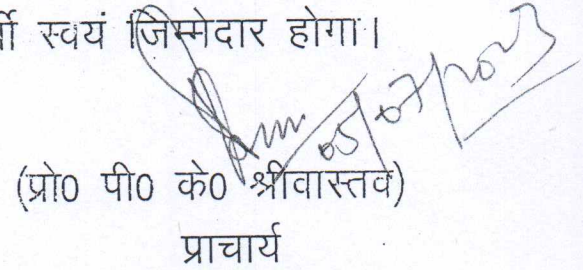 स्वयं जिम्मेदार होगा।
05/07/2023
(प्रो0 पी0 के0 श्रीवास्तव)
प्राचार्य